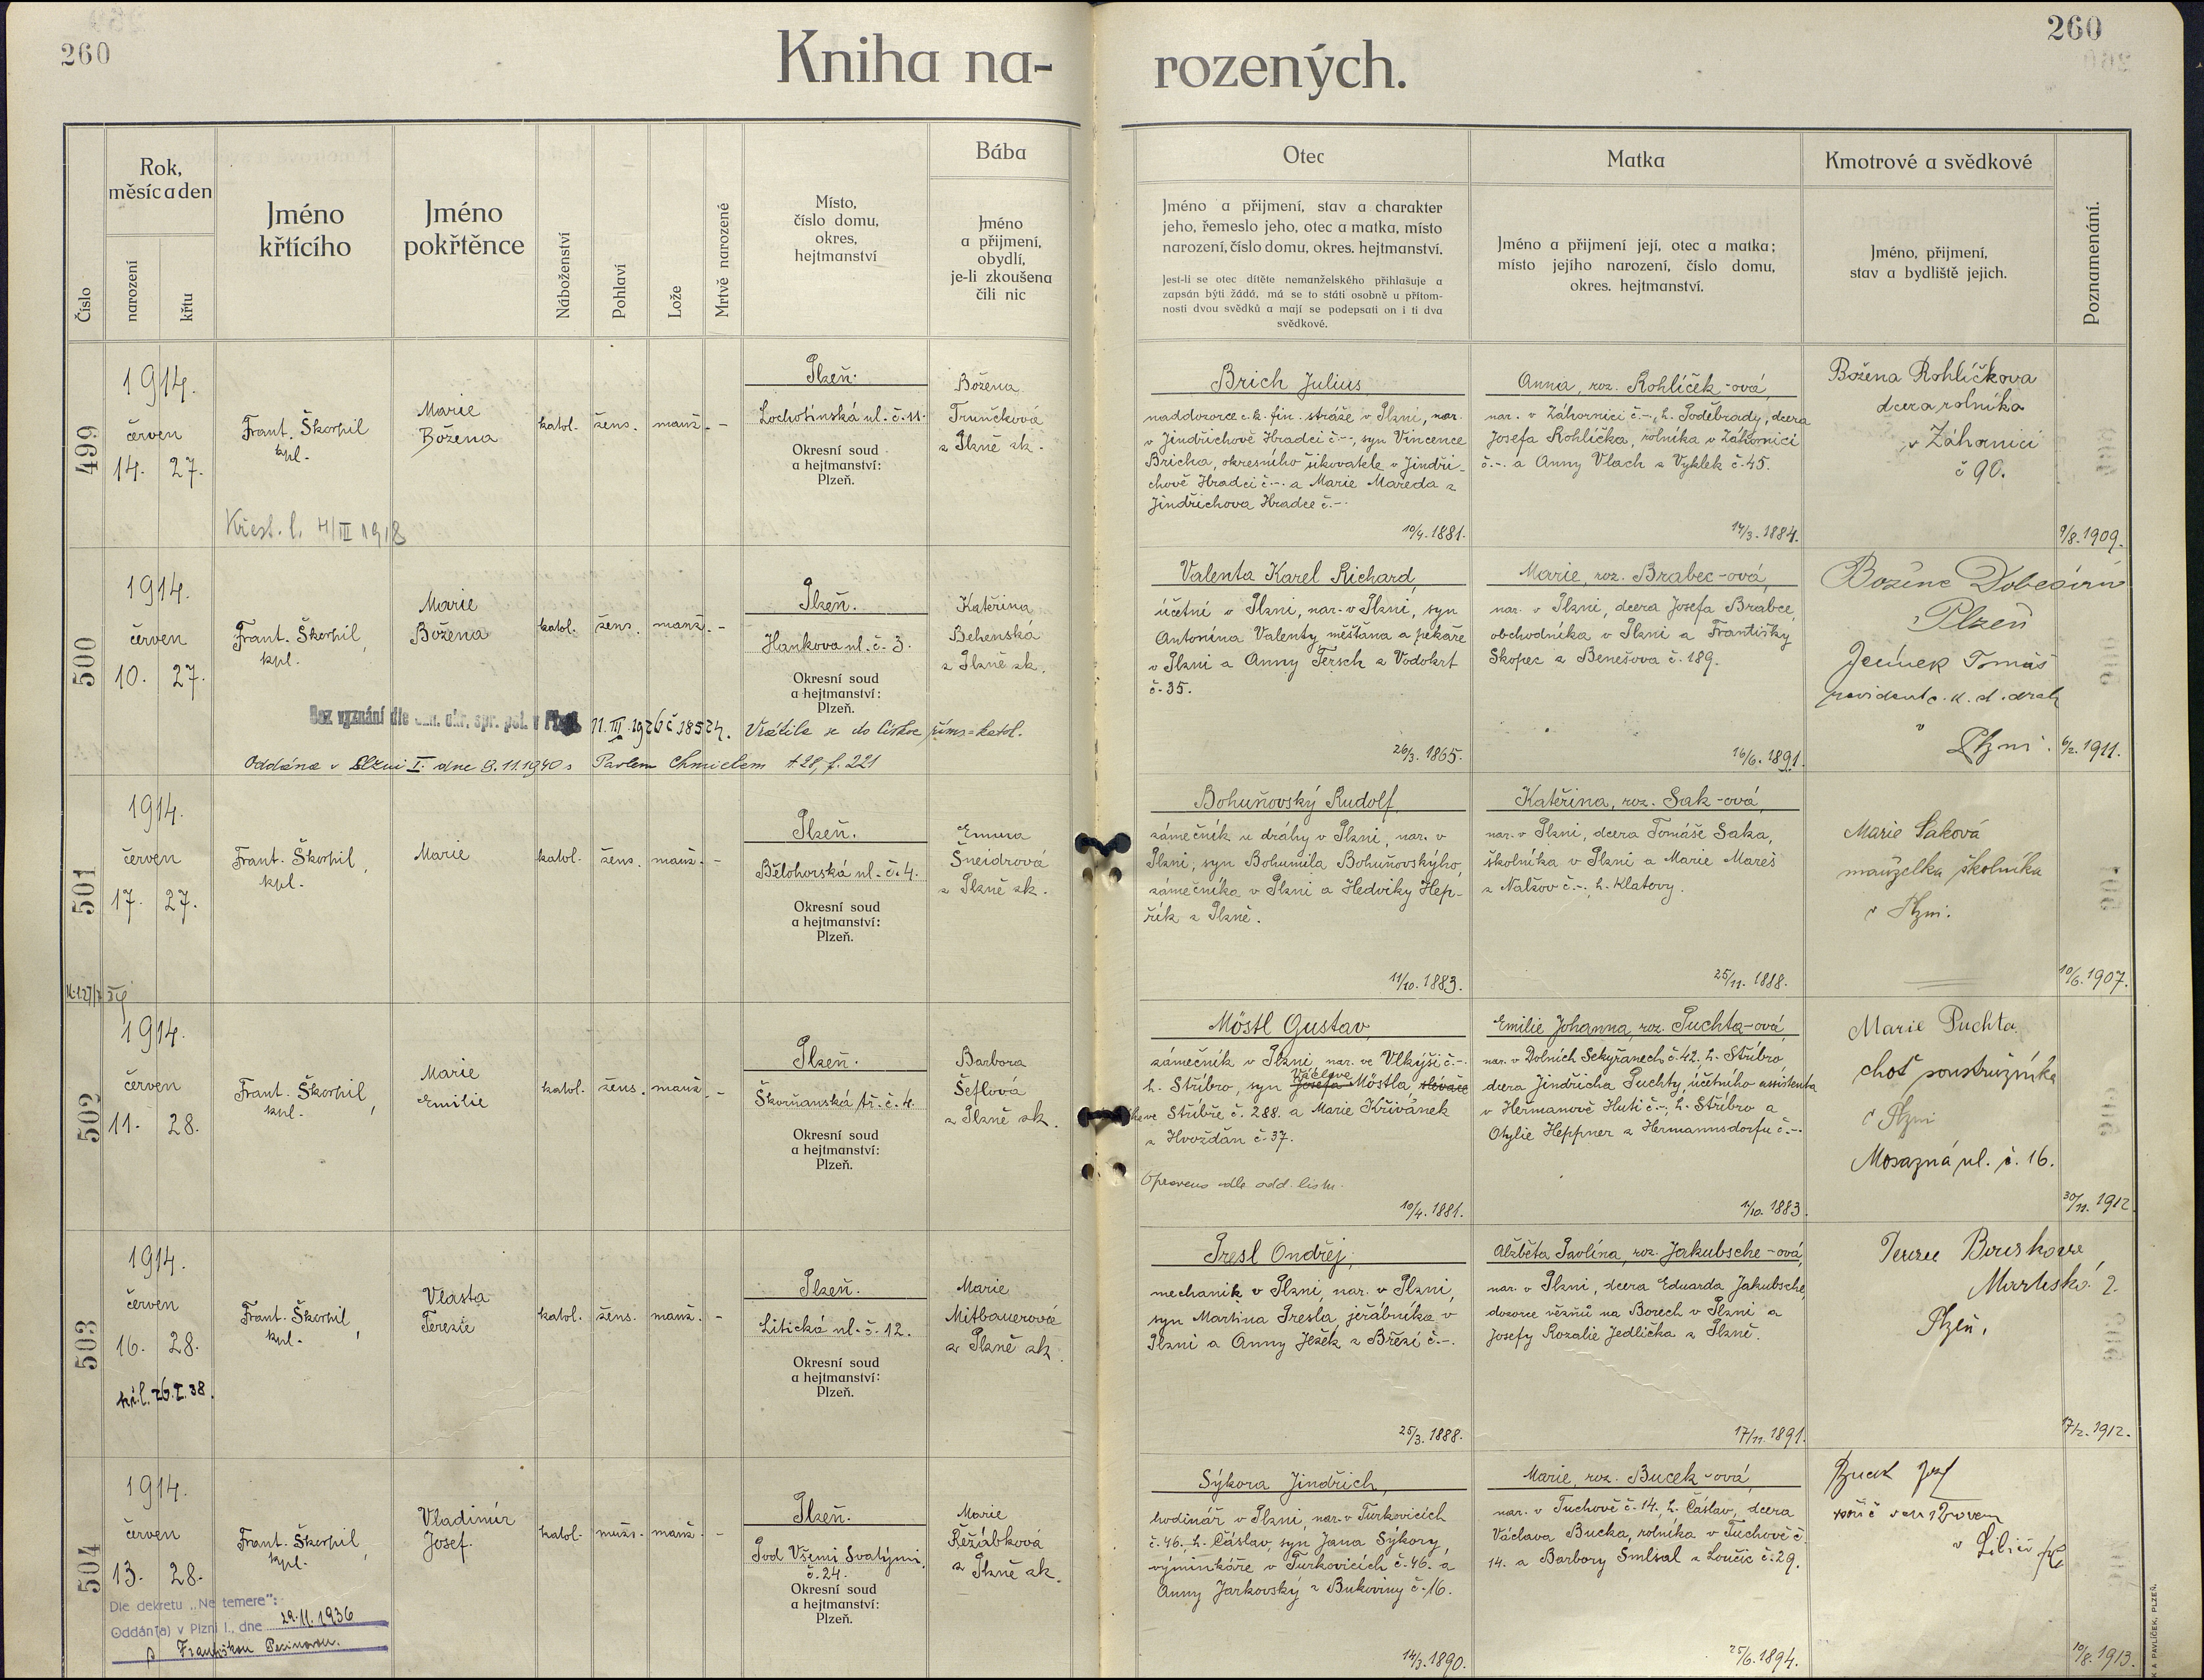 260
260
Kniha na-
rozených.
Číslo
Rok,
měsíc a den
narození
křtu
Jméno
křtícího
Jméno
pokřtěnce
Náboženství
Pohlaví
Lože
Mrtvě narozené
Místo,
číslo domu,
okres,
hejtmanství
Bába
Jméno
a přijmení,
obydlí,
je-li zkoušena
čili nic
Otec
Jméno a přijmení, stav a charakter
jeho, řemeslo jeho, otec a matka, místo
narození, číslo domu, okres. hejtmanství.
Jest-li se otec dítěte nemanželského přihlašuje a
zapsán býti žádá, má se to státi osobně u přítom-
nosti dvou svědků a mají se podepsati on i ti dva
svědkové.
Matka
Jméno a přijmení její, otec a matka;
místo jejího narození, číslo domu,
okres. hejtmanství.
Kmotrové a svědkové
Jméno, přijmení,
stav a bydliště jejich.
Poznamenání.
499
1914.
červen
14. 27.
Frant. Škorpil
kpl.
Marie
Božena
katol.
žens.
manž.
-
Plzeň.
Lochotínská ul. č. 11.
Okresní soud
a hejtmanství:
Plzeň.
Božena
Trunčková
z Plzně zk.
Brich Julius,
naddozorce c. k. fin. stráže v Plzni, nar.
v Jindřichově Hradci č.-, syn Vincence
Bricha, okresního šikovatele v Jindři-
chově Hradci č.-. a Marie Mareda z
Jindřichova Hradce č.-.
10/4. 1881.
Anna, roz. Rohlíček-ová,
nar. v Záhornici č.-, h. Poděbrady, dcera
Josefa Rohlíčka, rolníka v Záhornici
č.-. a Anny Vlach z Vyklek č. 45.
17/3. 1884.
Božena Rohlíčkova
dcera rolníka
v Záhornici
č 90.
9/8. 1909.
Křest. l. 4/III 1918
500
1914.
červen
10. 27.
Frant. Škorpil,
kpl.
Marie
Božena
katol.
žens.
manž.
-
Plzeň.
Hankova ul. č. 3.
Okresní soud
a hejtmanství:
Plzeň.
Kateřina
Behenská
z Plzně zk.
Valenta Karel Richard,
účetní v Plzni, nar. v Plzni, syn
Antonína Valenty, měšťana a pekaře
v Plzni a Anny Tersch z Vodokrt
č. 35.
26/3. 1865.
Marie, roz. Brabec-ová,
nar. v Plzni, dcera Josefa Brabce,
obchodníka v Plzni a Františky
Skopec z Benešova č. 189.
16/6. 1891.
Plzeň
Tomáš
v
Plzni.
6/2. 1911.
Bez vyznání dle ozn. okr. spr. pol. v Plzni 11. III. 1926 č 18524. Vrátila se do Církve řims-katol.
Oddána v Plzni I. dne 9.11.1940 s Pavlem Chmielem t. 28, f. 221
501
1914.
červen
17. 27.
Frant. Škorpil,
kpl.
Marie
katol.
žens.
manž.
-
Plzeň.
Bělohorská ul. č. 4.
Okresní soud
a hejtmanství:
Plzeň.
Emma
Šneidrová
z Plzně zk.
Bohuňovský Rudolf,
zámečník u dráhy v Plzni, nar. v
Plzni, syn Bohumila Bohuňovskýho,
zámečníka v Plzni a Hedviky Hep-
řík z Plzně.
11/10. 1883.
Kateřina, roz. Sak-ová,
nar. v Plzni, dcera Tomáše Saka,
školníka v Plzni a Marie Mareš
z Nalžov č.-. h. Klatovy.
25/11. 1888.
Marie Saková
manželka školníka
v Plzni.
10/6. 1907.
502
1914.
červen
11. 28.
Frant. Škorpil,
kpl.
Marie
Emilie
katol.
žens.
manž.
-
Plzeň.
Škorňanská tř. č. 4.
Okresní soud
a hejtmanství:
Plzeň.
Barbora
Šeflová
z Plzně zk.
Möstl Gustav,
zámečník v Plzni, nar. ve Vlkýši č.-.
h. Stříbro, syn Josefa Václava Möstla, slévače
ve Stříbře č. 288. a Marie Křivánek
z Hvožďan č. 37.
Opraveno dle odd. listu.
10/4. 1881.
Emilie Johanna, roz. Puchta-ová,
nar. v Dolních Sekyřanech č. 42, h. Stříbro,
dcera Jindřicha Puchty, účetního assistenta
v Heřmanově Huti č.-, h. Stříbro a
Otylie Heppner z Hermannsdorfu č.-.
1/10. 1883.
Marie Puchta
choť soustružníka
v Plzni
Mosazná ul. č. 16.
30/11. 1912.
503
1914.
červen
16. 28.
kř. l. 26. I. 38.
Frant. Škorpil,
kpl.
Vlasta
Terezie
katol.
žens.
manž.
-
Plzeň.
Litická ul. č. 12.
Okresní soud
a hejtmanství:
Plzeň.
Marie
Mitbauerová
z Plzně zk.
Presl Ondřej,
mechanik v Plzni, nar. v Plzni,
syn Martina Presla, jeřábníka v
Plzni a Anny Ježek z Březí č.-.
25/3. 1888.
Alžběta Pavlína, roz. Jakubsche-ová,
nar. v Plzni, dcera Eduarda Jakubsche,
dozorce vězňů na Borech v Plzni a
Josefy Rozalie Jedlička z Plzně.
17/11. 1891.
2.
Plzeň.
17/2. 1912.
504
1914.
červen
13. 28.
Frant. Škorpil,
kpl.
Vladimír
Josef.
katol.
mužs.
manž.
-
Plzeň.
Pod Všemi Svatými,
č. 24.
Okresní soud
a hejtmanství:
Plzeň.
Marie
Řežábková
z Plzně zk.
Sýkora Jindřich,
hodinář v Plzni, nar. v Turkovicích
č. 46., h. Čáslav, syn Jana Sýkory,
výminkáře v Turkovicích č. 46. a
Anny Jarkovský z Bukoviny č. 16.
14/3. 1890.
Marie, roz. Bucek-ová,
nar. v Tuchově č. 14., h. Čáslav, dcera
Václava Bucka, rolníka v Tuchově č.
14. a Barbory Smlsal z Loučic č. 29.
25/6. 1894.
10/8. 1913.
Dle dekretu „Ne temere":
Oddán(a) v Plzni I., dne 29.11.1936
s Františkou Pecinovou.
K A PAVLÍČEK, PLZEŇ.